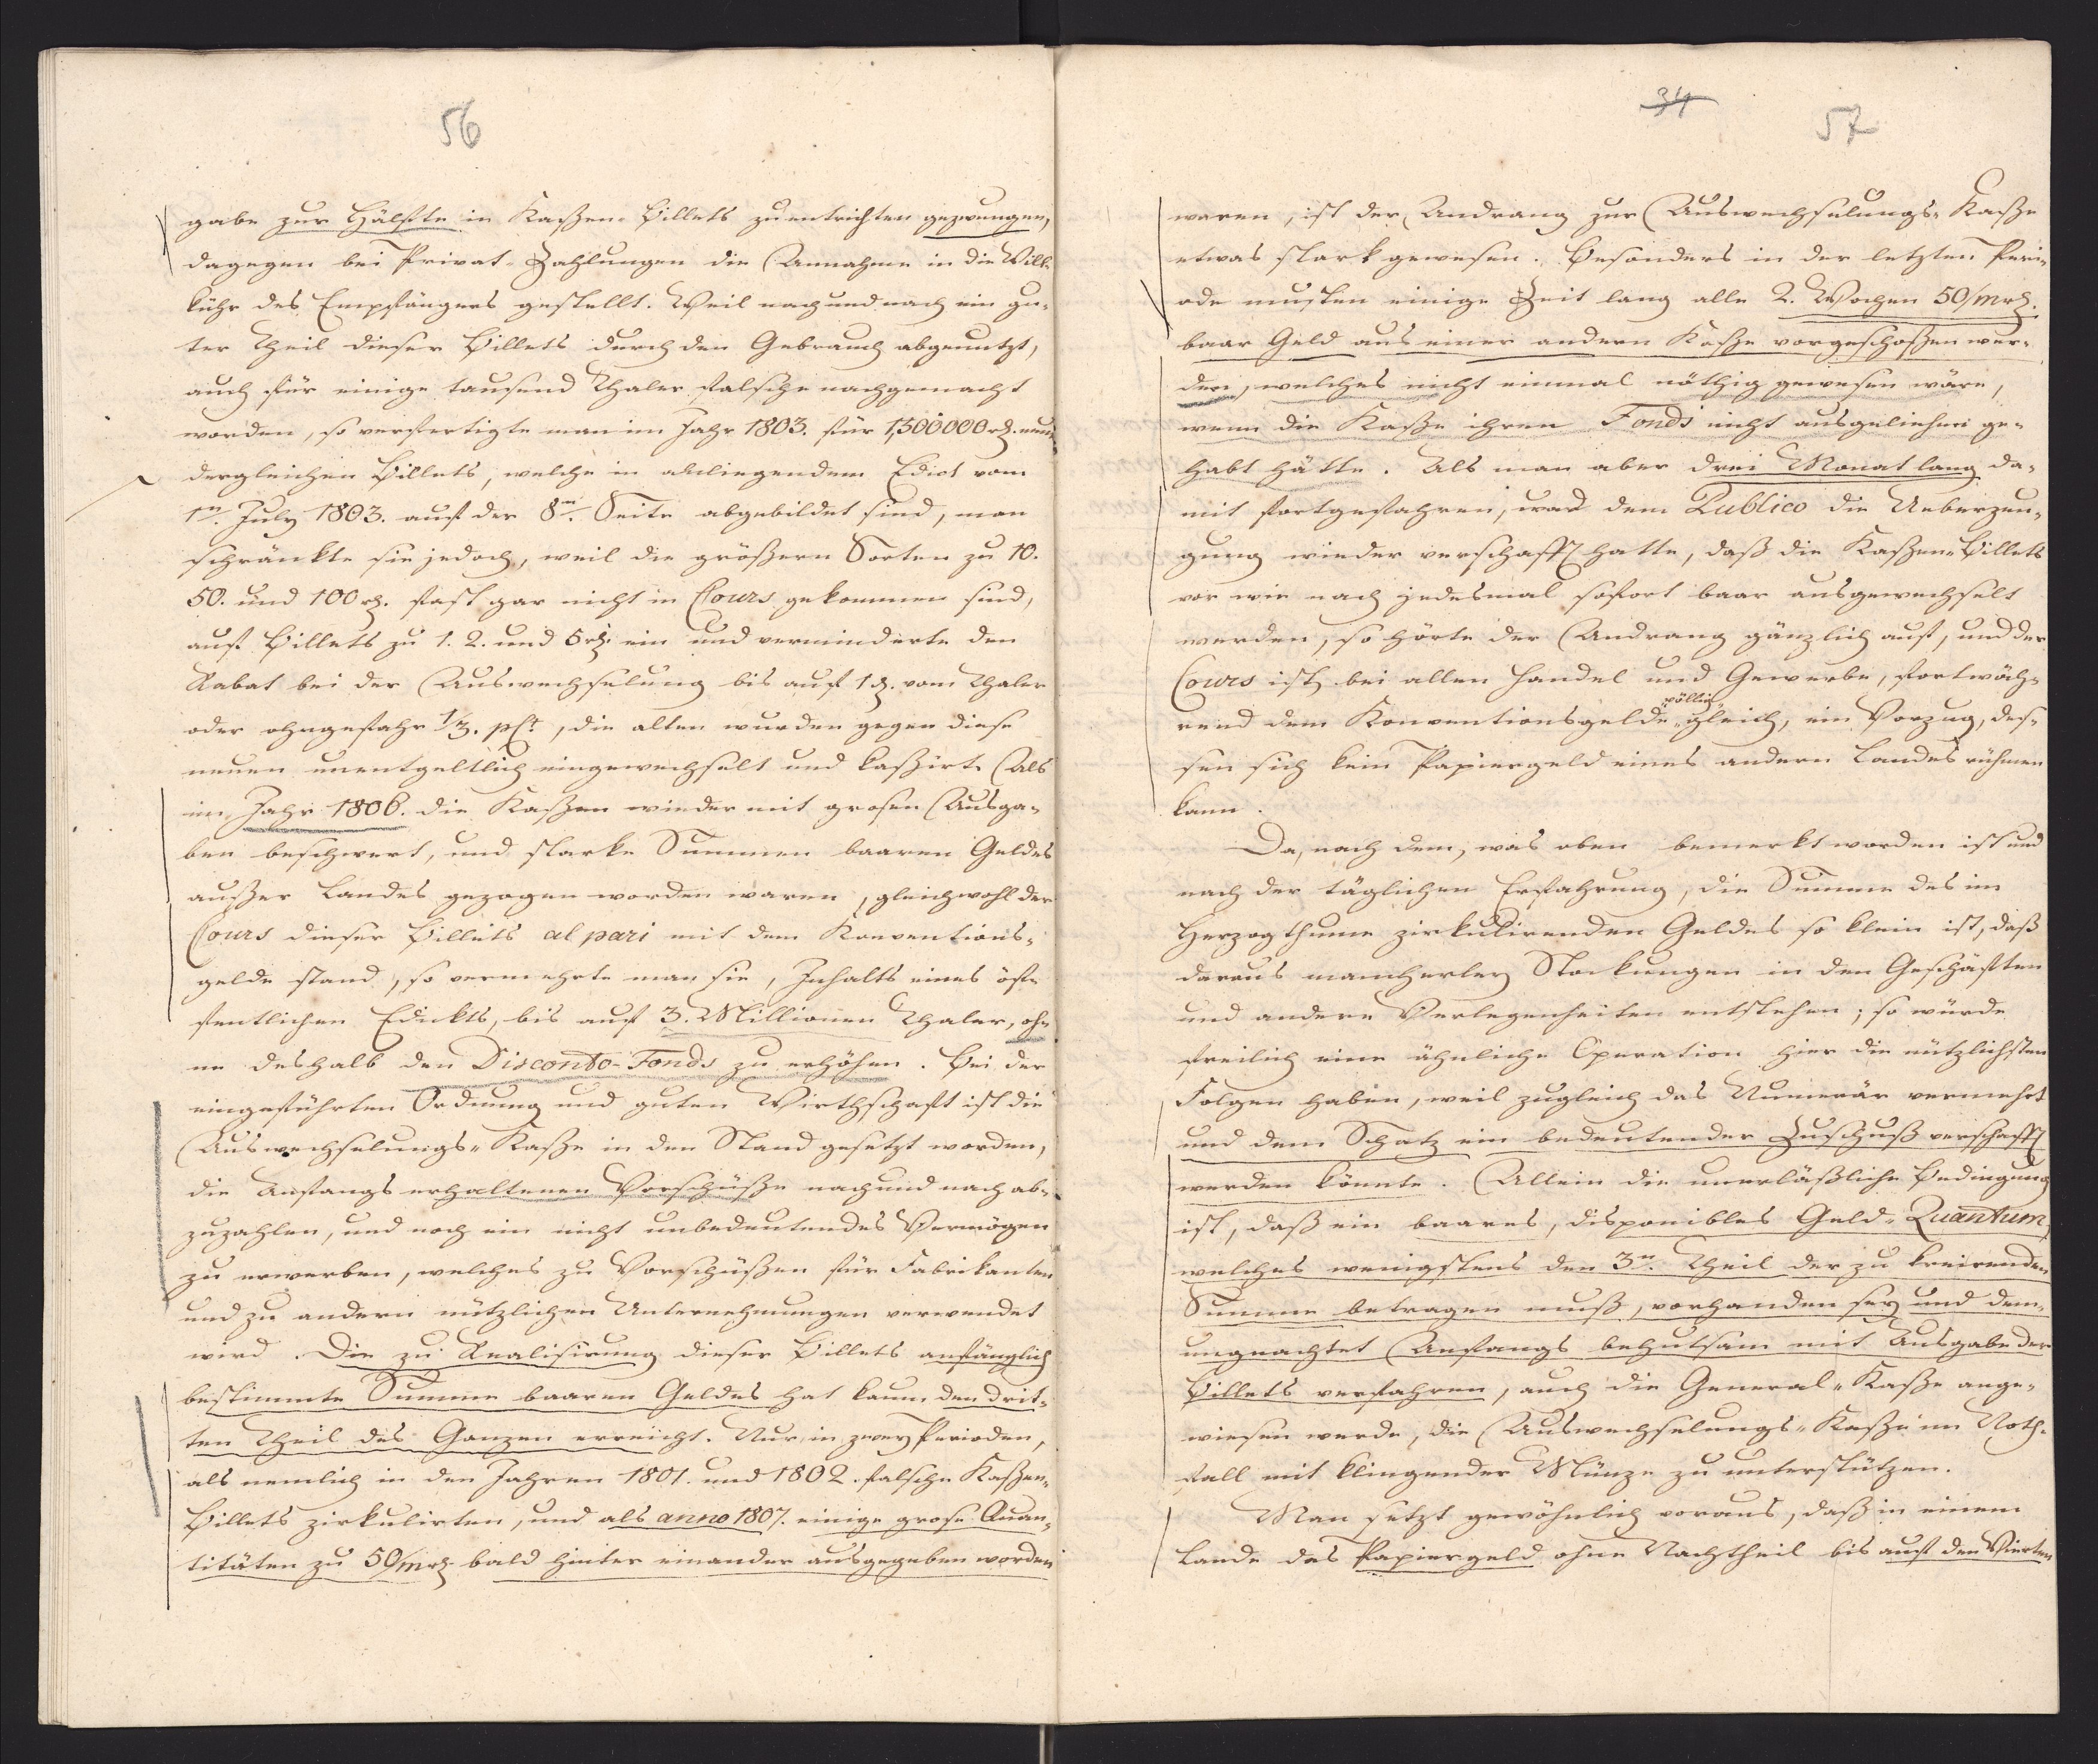 56
gabe zur Hälfte in Kaßen-Billets zu entrichten gezwungen,
dagegen bei Privat-Zahlungen die Annahme in die Will-
kühr des Empfängers gestellt. Weil nach und nach ein gu-
ter Theil dieser Billets durch den Gebrauch abgenutzt,
auch für einige tausend Thaler falsche nachgemacht
worden, so verfertigte man im Jahr 1803. für 1,500000 rh. neue
dergleichen Billets, welche in anliegendem Edict vom
1n. July 1803. auf der 8n. Seite abgebildet sind, man
schränkte sie jedoch, weil die größern Sorten zu 10.
50. und 100 rh. fast gar nicht in Cours gekommen sind,
auf Billets zu 1. 2. und 5 rh. ein und verminderte den
Rabat bei der Auswechselung bis auf 1 d. vom Thaler
oder ohngefähr 1/3. pCt., die alten wurden gegen diese
neuen unentgeltlich eingewechselt und kaßirt. Als
im Jahr 1806. die Kaßen wieder mit grosen Ausga-
ben beschwert, und starke Summen baaren Geldes
außer Landes gezogen worden waren, gleichwohl der
Cours dieser Billets al pari mit dem Konventions-
gelde stand, so vermehrte man sie, Inhalts eines öf-
fentlichen Edickts, bis auf 3. Millionen Thaler, oh-
ne deshalb den Disconto-Fonds zu erhöhen. Bei der
eingeführten Ordnung und guten Wirthschaft ist die
Auswechselungs-Kaße in den Stand gesetzt worden,
die Anfangs erhaltenen Vorschüße nach und nach ab-
zuzahlen, und noch ein nicht unbedeutendes Vermögen
zu erwerben, welches zu Vorschüßen für Fabrikanten
und zu andern nützlichen Unternehmungen verwendet
wird. Die zu Realisirung dieser Billets anfänglich
bestimmte Summe baaren Geldes hat kaum den drit-
ten Theil des Ganzen erreicht. Nur in zwey Perioden,
als nemlich in den Jahren 1801. und 1802. falsche Kaßen-
Billets zirkulirten, und als anno 1807. einige grose Quan-
titäten zu 50/m rh. bald hinter einander ausgegeben worden
34
57
waren, ist der Andrang zur Auswechselungs-Kaße
etwas stark gewesen. Besonders in der letzten Peri-
ode musten einige Zeit lang alle 2. Wochen 50/m rh.
baar Geld aus einer andern Kaße vorgeschoßen wer-
den, welches nicht einmal nöthig gewesen wäre,
wenn die Kaße ihren Fonds nicht ausgeliehen ge-
habt hätte. Als man aber drei Monat lang da-
mit fortgefahren, und dem Publico die Ueberzeu-
gung wieder verschafft hatte, daß die Kaßen-Billets
vor wie nach jedesmal sofort baar ausgewechselt
werden, so hörte der Andrang gänzlich auf, und der
Cours ist bei allen Handel und Gewerbe, fortwäh-
rend dem Konventionsgelde völlig gleich, ein Vorzug, des-
sen sich kein Papiergeld eines andern Landes rühmen
kann.
Da, nach dem, was oben bemerkt worden ist und
nach der täglichen Erfahrung, die Summe des im
Herzogthume zirkulirenden Geldes so klein ist, daß
daraus mancherley Stockungen in den Geschäften
und andere Verlegenheiten entstehen; so würde
freilich eine ähnliche Operation hier die nützlichsten
Folgen haben, weil zugleich das Numerär vermehrt
und dem Schatz ein bedeutender Zuschuß verschafft
werden könnte. Allein die unerläßliche Bedingung
ist, daß ein baares, disponibles Geld-Quantum,
welches wenigstens den 3n. Theil der zu kreirenden
Summe betragen muß, vorhanden sey und dem-
ungeachtet Anfangs behutsam mit Ausgabe der
Billets verfahren, auch die General-Kaße ange-
wiesen werde, die Auswechselungs-Kaße im Noth-
fall mit klingender Münze zu unterstützen.
Man setzt gewöhnlich voraus, daß in einem
Lande das Papiergeld ohne Nachtheil bis auf den Vierten